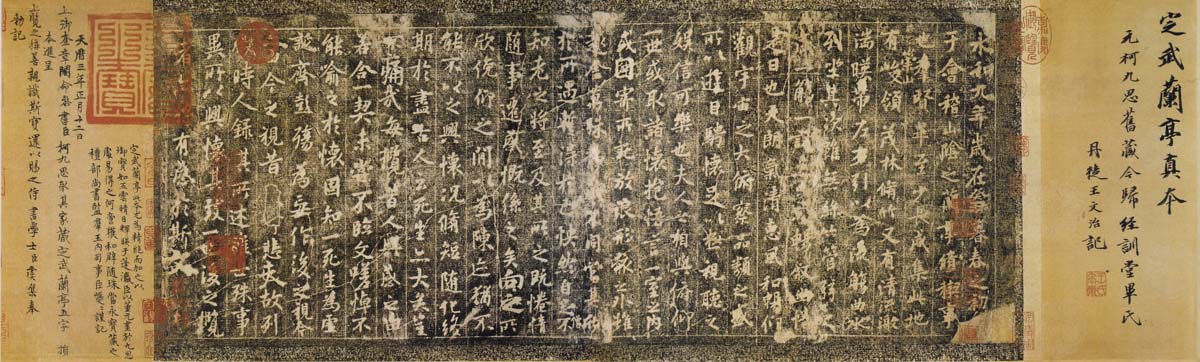 定武蘭亭真本
元柯九思舊藏今歸經訓堂畢氏
丹徒王文治記
永和九年歲在癸丑暮春之初
于會稽山陰之蘭亭脩稧事
也羣賢畢至少長咸集此地
有峻領茂林脩竹又有清流激
湍暎帶左右引以為流觴曲水
列坐其次
一觴一詠亦足以暢敘幽情
是日也天朗氣清惠風和暢仰
觀宇宙之大俯察品類之盛
所以遊目騁懷足以極視聽之
娛信可樂也夫人之相與俯仰
一世或取諸懷抱悟言一室之內
或因寄所託放浪形骸之外雖
趣舍萬殊靜躁不同當其欣
於所遇暫得於己快然自足不
知老之將至及其所之既惓情
隨事遷感慨係之矣向之所
欣俛仰之間以為陳迹猶不
能不以之興懷況脩短隨化終
期於盡古人云死生亦大矣豈
不痛哉每攬昔人興感之由
若合一契未嘗不臨文嗟悼不
能喻之於懷固知一死生為虛
誕齊彭殤為妄作後之視今
亦由今之視昔悲夫故列
敘時人錄其所述雖世殊事
異所以興懷其致一也後之攬
者亦將有感於斯文
定武蘭亭此本尤為精絕而加之以
御寶如五雲晴日輝暎于蓬瀛臣以董元畫於九思
處易得之何啻獲和璧隨珠當永寶藏之
禮部尚書監羣玉內司事臣巎巎謹記
天曆三年正月十二日
上御奎章閣命參書臣柯九思取其家藏定武蘭亭五字損
本進呈
上覽之稱善親識斯寶還以賜之侍書學士臣虞集奉
勅記